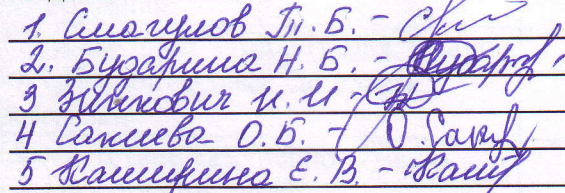 1. Смагулов Т. Б. -
2. Бударина Н. Б. -
3 Зинкович И. И -
4 Сакиева О. Б. -
5 Каширина Е. В. -